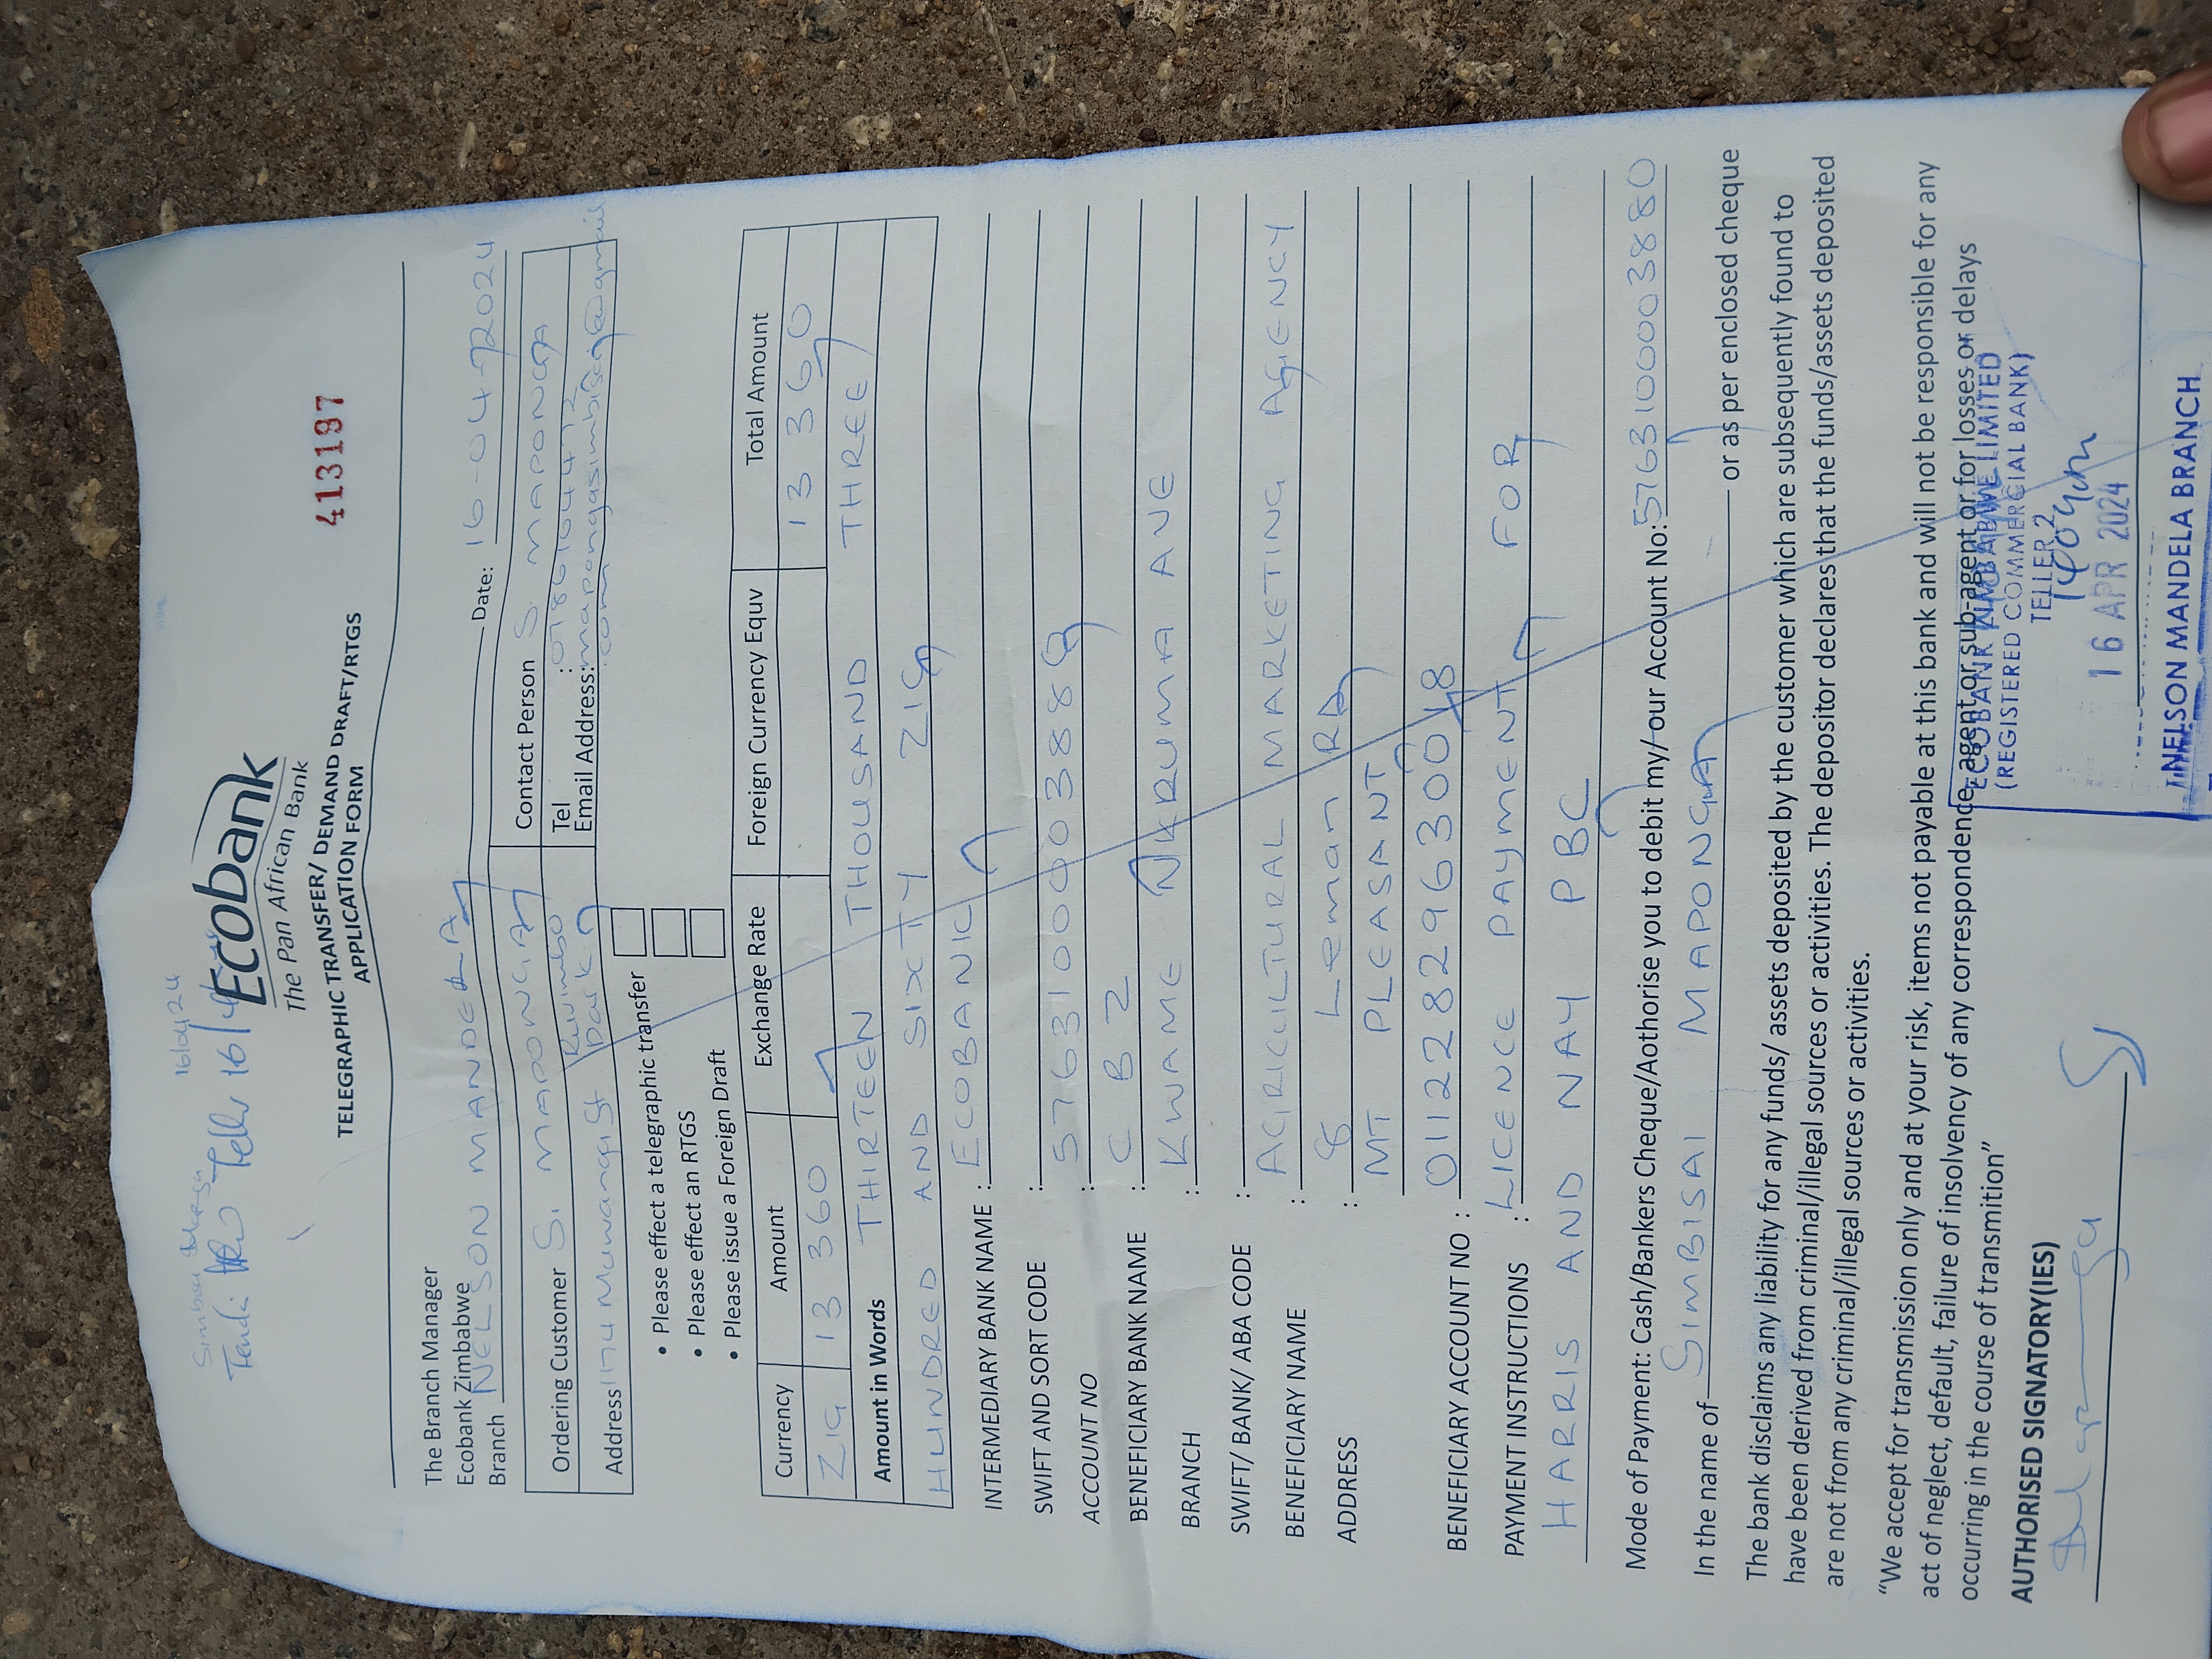 16/04/24
Tendi Teller 16/4
Ecobank
The Pan African Bank
413197
TELEGRAPHIC TRANSFER/ DEMAND DRAFT/RTGS
APPLICATION FORM
The Branch Manager
Ecobank Zimbabwe
Branch NELSON MANDELA Date: 16-04-2024
Ordering Customer S. MAPONGA Contact Person S. MAPONGA
Address 1174 Muwanga St Ruvimbo Park Tel :
Email Address: mapongasimbisai@gmail
.com
• Please effect a telegraphic transfer
• Please effect an RTGS
• Please issue a Foreign Draft
Currency Amount Exchange Rate Foreign Currency Equv Total Amount
ZIG 13 360 13 360
Amount in Words THIRTEEN THOUSAND THREE
HUNDRED AND SIXTY ZIG
INTERMEDIARY BANK NAME : ECOBANK
SWIFT AND SORT CODE :
ACCOUNT NO : 576310000388
BENEFICIARY BANK NAME : CBZ
BRANCH : KWAME NKRUMA AVE
SWIFT/ BANK/ ABA CODE :
BENEFICIARY NAME : AGRICULTURAL MARKETING AGENCY
ADDRESS : 8 Leman RD
MT PLEASANT
BENEFICIARY ACCOUNT NO : 01122829630018
PAYMENT INSTRUCTIONS : LICENCE PAYMENT FOR
HARRIS AND NAY PBC
Mode of Payment: Cash/Bankers Cheque/Aothorise you to debit my/our Account No: 576310003880
In the name of SIMBISAI MAPONGA or as per enclosed cheque
The bank disclaims any liability for any funds/ assets deposited by the customer which are subsequently found to
have been derived from criminal/illegal sources or activities. The depositor declares that the funds/assets deposited
are not from any criminal/illegal sources or activities.
“We accept for transmission only and at your risk, items not payable at this bank and will not be responsible for any
act of neglect, default, failure of insolvency of any correspondence, agent or sub-agent or for losses or delays
occurring in the course of transmition”
AUTHORISED SIGNATORY(IES)
ECOBANK ZIMBABWE LIMITED
(REGISTERED COMMERCIAL BANK)
TELLER 2
16 APR 2024
NELSON MANDELA BRANCH